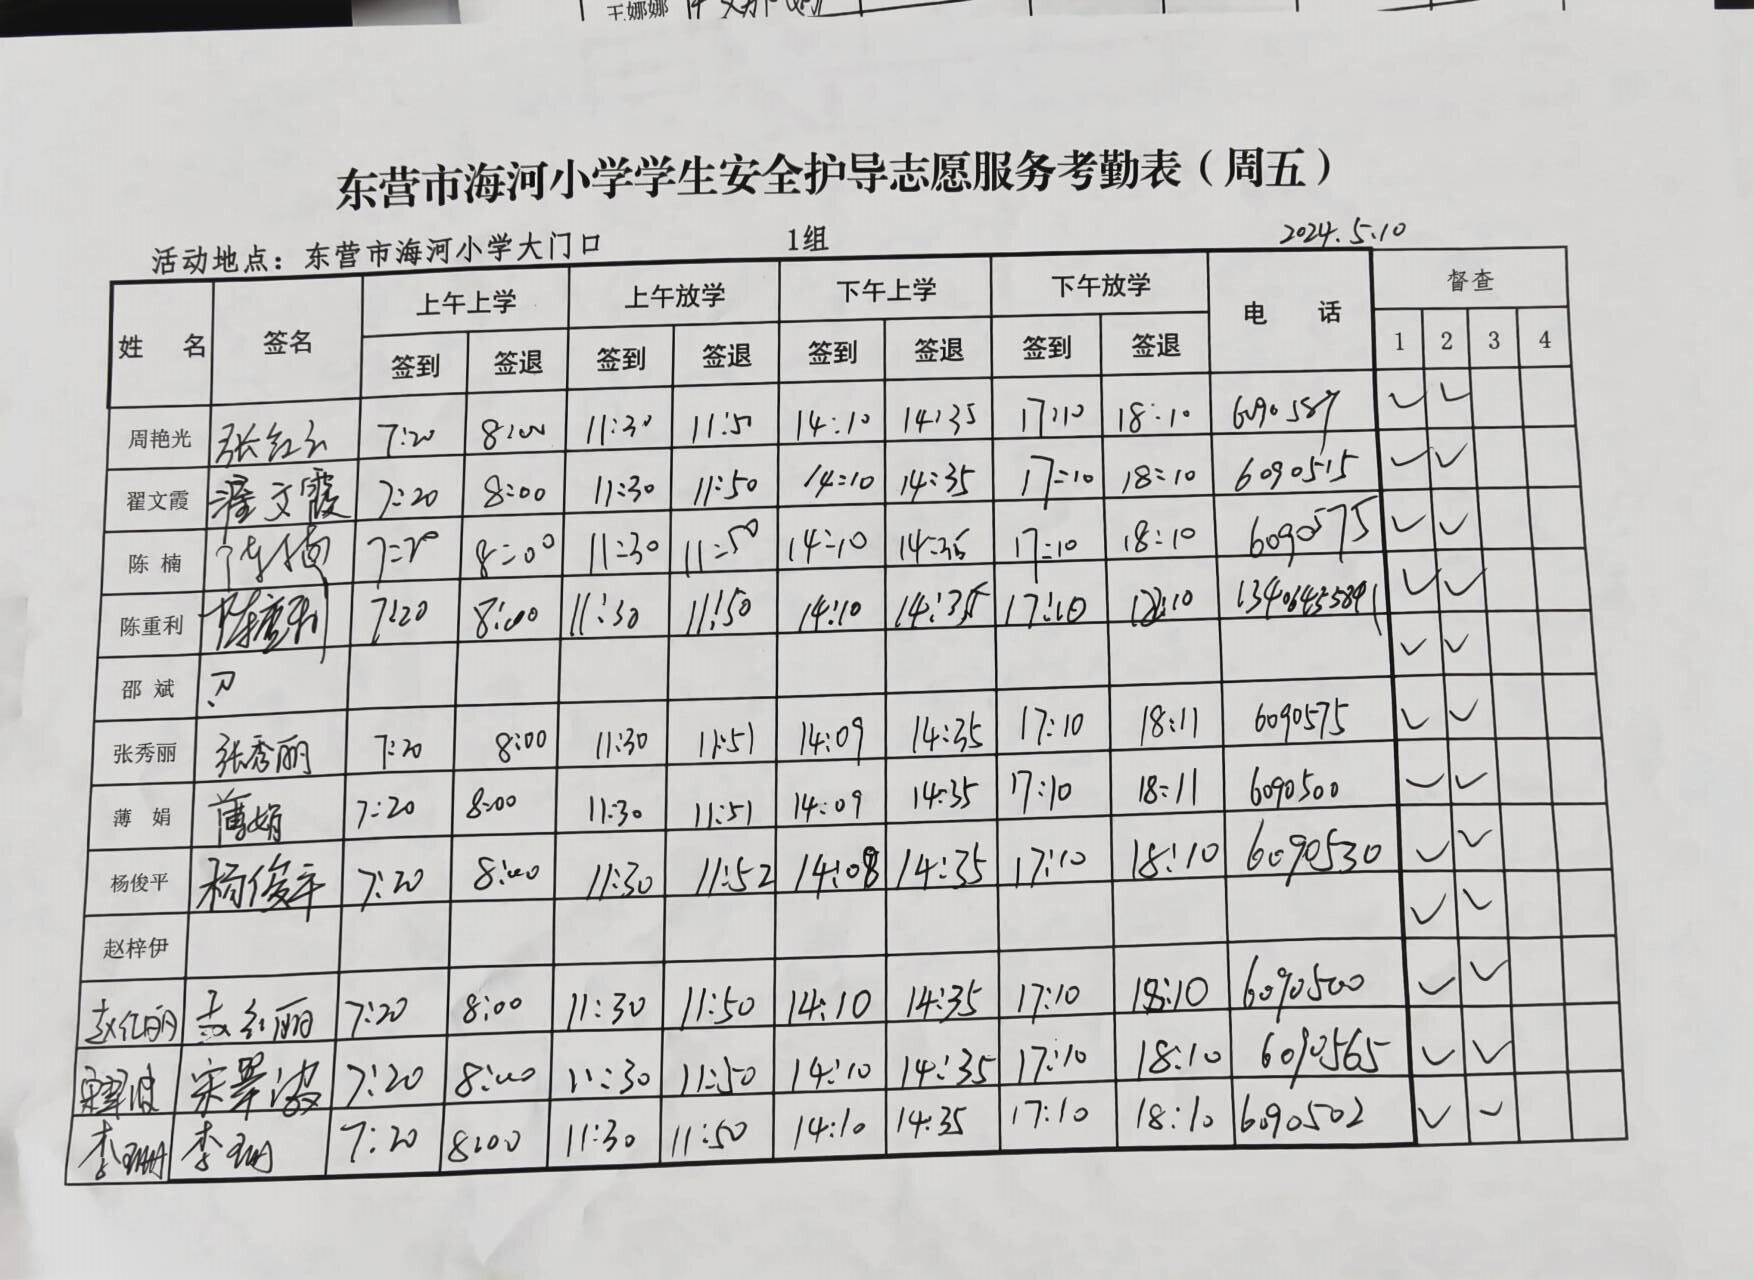 王娜娜
东营市海河小学学生安全护导志愿服务考勤表（周五）
活动地点：东营市海河小学大门口 1组 2024.5.10
姓 名 签名 上午上学 上午放学 下午上学 下午放学 电 话 督查
签到 签退 签到 签退 签到 签退 签到 签退 1 2 3 4
周艳光 张红云 7:20 8:00 11:30 11:50 14:10 14:35 17:10 18:10 6090587 ✓ ✓
翟文霞 翟文霞 7:20 8:00 11:30 11:50 14:10 14:35 17:10 18:10 6090515 ✓ ✓
陈 楠 陈楠 7:20 8:00 11:30 11:50 14:10 14:35 17:10 18:10 6090575 ✓ ✓
陈重利 陈重利 7:20 8:00 11:30 11:50 14:10 14:35 17:10 18:10 ✓ ✓
邵 斌 ✓ ✓
张秀丽 张秀丽 7:20 8:00 11:30 11:51 14:09 14:35 17:10 18:11 6090575 ✓ ✓
薄 娟 薄娟 7:20 8:00 11:30 11:51 14:09 14:35 17:10 18:11 6090500 ✓ ✓
杨俊平 杨俊平 7:20 8:00 11:30 11:52 14:08 14:35 17:10 18:10 6090530 ✓ ✓
赵梓伊 ✓ ✓
赵红丽 赵红丽 7:20 8:00 11:30 11:50 14:10 14:35 17:10 18:10 6090500 ✓ ✓
宋翠波 宋翠波 7:20 8:00 11:30 11:50 14:10 14:35 17:10 18:10 6090565 ✓ ✓
李珊 李珊 7:20 8:00 11:30 11:50 14:10 14:35 17:10 18:10 6090502 ✓ ✓